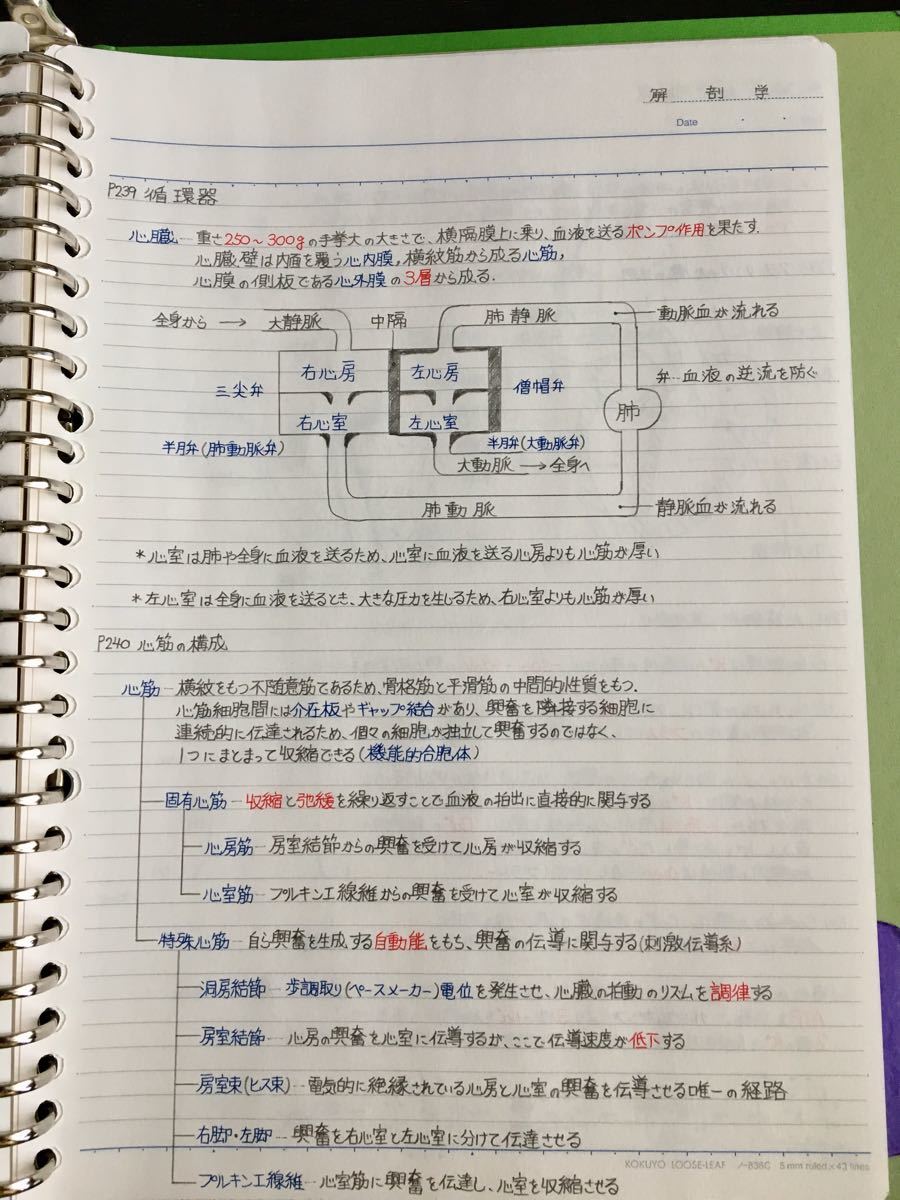 解剖学
Date
P239 循環器
心臓 ― 重さ250~300gの手拳大の大きさで、横隔膜上に乗り、血液を送るポンプ作用を果たす.
心臓壁は内面を覆う心内膜,横紋筋から成る心筋,
心膜の側板である心外膜の3層から成る.
全身から → 大静脈 中隔 肺静脈 動脈血が流れる
右心房 左心房 弁 ― 血液の逆流を防ぐ
三尖弁 僧帽弁
肺
右心室 左心室
半月弁(肺動脈弁) 半月弁(大動脈弁)
大動脈 → 全身へ
肺動脈 静脈血が流れる
*心室は肺や全身に血液を送るため、心室に血液を送る心房よりも心筋が厚い
*左心室は全身に血液を送るとき、大きな圧力を生じるため、右心室よりも心筋が厚い
P240 心筋の構成
心筋 ― 横紋をもつ不随意筋であるため、骨格筋と平滑筋の中間的性質をもつ.
心筋細胞間には介在板やギャップ結合があり、興奮を隣接する細胞に
連続的に伝達されるため、個々の細胞が独立して興奮するのではなく、
1つにまとまって収縮できる(機能的合胞体)
固有心筋 ― 収縮と弛緩を繰り返すことで血液の拍出に直接的に関与する
心房筋 ― 房室結節からの興奮を受けて心房が収縮する
心室筋 ― プルキンエ線維からの興奮を受けて心室が収縮する
特殊心筋 ― 自ら興奮を生成する自動能をもち、興奮の伝導に関与する(刺激伝導系)
洞房結節 ― 歩調取り(ペースメーカー)電位を発生させ、心臓の拍動のリズムを調律する
房室結節 ― 心房の興奮を心室に伝導するが、ここで伝導速度が低下する
房室束(ヒス束) ― 電気的に絶縁されている心房と心室の興奮を伝導させる唯一の経路
右脚・左脚 ― 興奮を右心室と左心室に分けて伝達させる
KOKUYO LOOSE-LEAF ノ-836C 5mm ruled×43 lines
プルキンエ線維 ― 心室筋に興奮を伝達し、心室を収縮させる